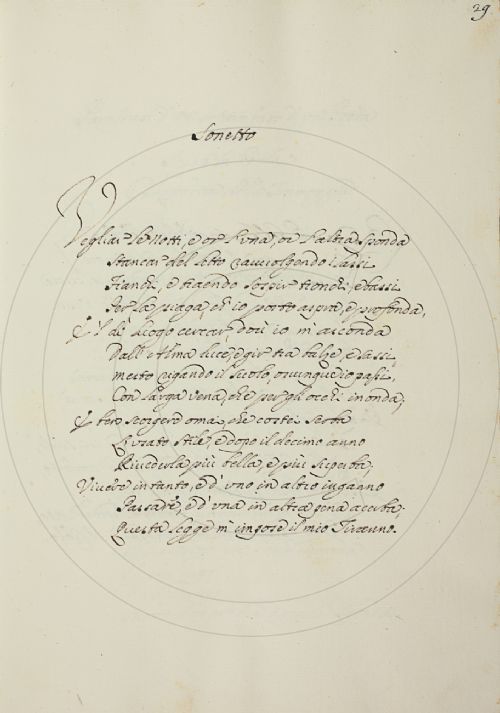 29
Sonetto
Vegliar le Notti, e or l'una, or l'altra sponda
stancar del letto rauuolgendo i lassi
Fianchi, e traendo sospir tronchi, e bassi
Per la piaga, ch'io porto aspra, e profonda,
E 'l dì luogo cercar dou' io m'asconda
Dall' Alma luce, e gir tra balze, e sassi
mesto rigando il suolo, ovunque io passi,
Con larga vena, che per gli occhi inonda;
E per scorgere omai che costei serba
L'usato stile, e dopo il decimo anno
Riuederla più bella, e più superba;
Viuere intanto, e d'uno in altro inganno
Passare, e d'una in altra pena acerba;
Questa legge m'impose il mio Tiranno.